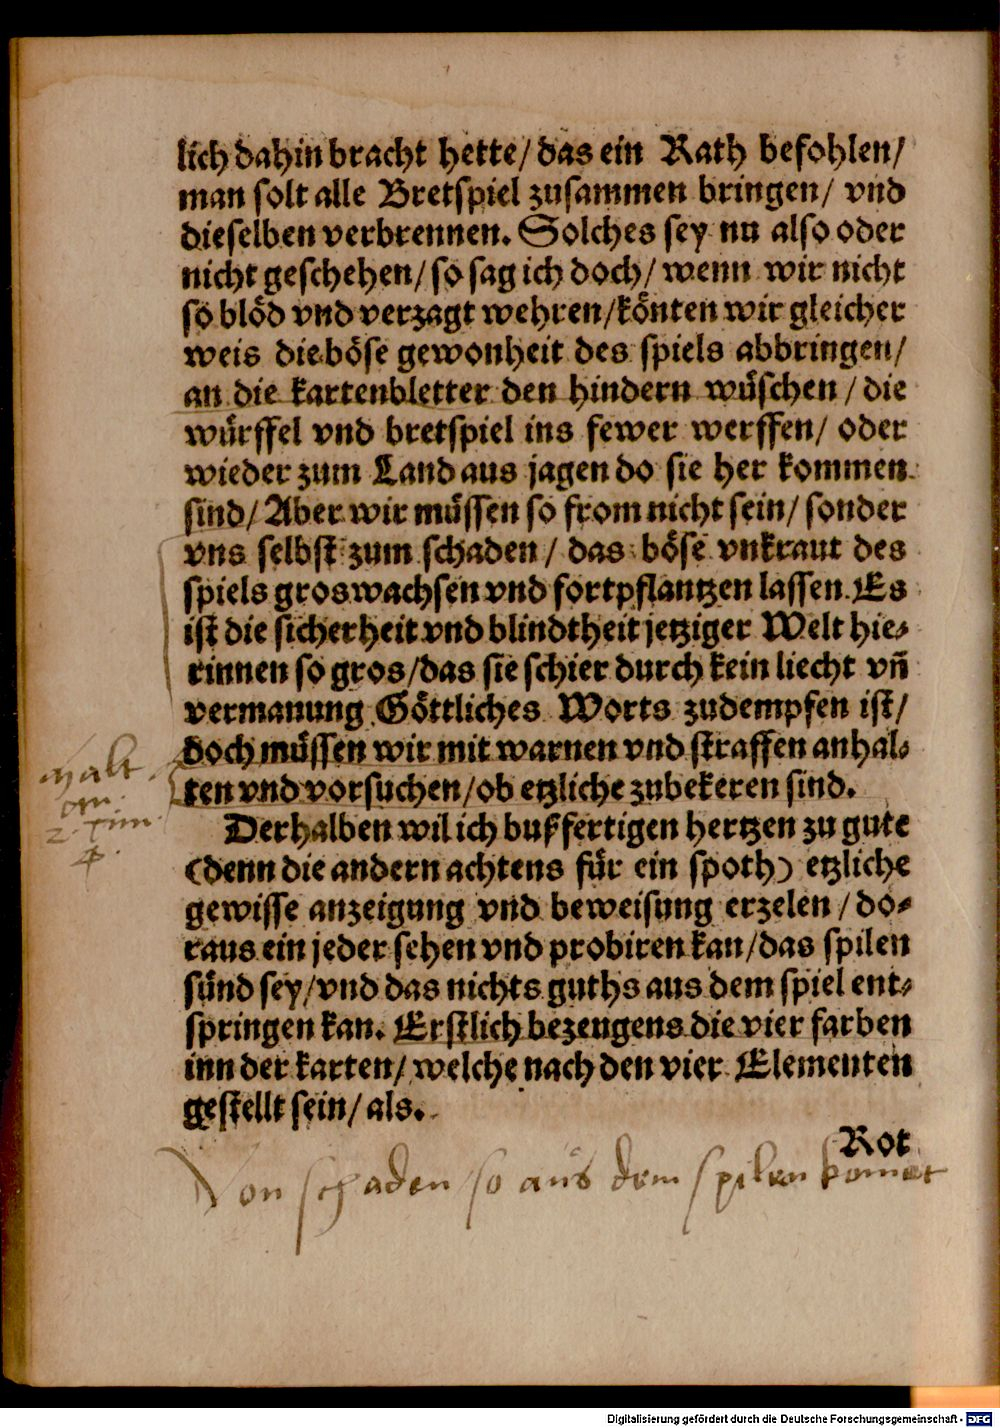 lich dahin bracht hette/ das ein Rath befohlen/
man solt alle Bretspiel zusammen bringen/ vnd
dieselben verbrennen. Solches sey nu also oder
nicht geschehen/ so sag ich doch/ wenn wir nicht
so blöd vnd verzagt wehren/ könten wir gleicher
weis die böse gewonheit des spiels abbringen/
an die kartenbletter den hindern wüschen / die
würffel vnd bretspiel ins fewer werffen/ oder
wieder zum Land aus jagen do sie her kommen
sind/ Aber wir müssen so from nicht sein/ sonder
vns selbst zum schaden / das böse vnkraut des
spiels gros wachsen vnd fortpflantzen lassen. Es
ist die sicherheit vnd blindtheit jetziger Welt hie-
rinnen so gros/ das sie schier durch kein liecht vñ
vermanung Göttliches Worts zudempfen ist/
doch müssen wir mit warnen vnd straffen anhal-
ten vnd vorsuchen/ ob etzliche zubekeren sind.
halt
an
2. Tim.
4.
Derhalben wil ich bußfertigen hertzen zu gute
(denn die andern achtens für ein spoth) etzliche
gewisse anzeigung vnd beweisung erzelen / do-
raus ein jeder sehen vnd probiren kan/ das spilen
sünd sey/ vnd das nichts guths aus dem spiel ent-
springen kan. Erstlich bezeugens die vier farben
inn der karten/ welche nach den vier Elementen
gestellt sein/ als.
Rot
Von schaden so aus dem spilen komet
Digitalisierung gefördert durch die Deutsche Forschungsgemeinschaft - DFG